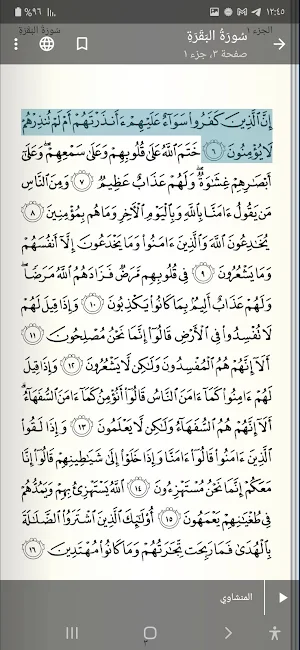 ١٢:٤٥ ٩٦%
الجزء ١ سورة البقرة
سُورَةُ البَقَرَةِ
صفحة ٣، جزء ١
إِنَّ ٱلَّذِينَ كَفَرُوا۟ سَوَآءٌ عَلَيْهِمْ ءَأَنذَرْتَهُمْ أَمْ لَمْ تُنذِرْهُمْ
لَا يُؤْمِنُونَ ٦ خَتَمَ ٱللَّهُ عَلَىٰ قُلُوبِهِمْ وَعَلَىٰ سَمْعِهِمْ ۖ وَعَلَىٰٓ
أَبْصَٰرِهِمْ غِشَٰوَةٌ ۖ وَلَهُمْ عَذَابٌ عَظِيمٌ ٧ وَمِنَ ٱلنَّاسِ
مَن يَقُولُ ءَامَنَّا بِٱللَّهِ وَبِٱلْيَوْمِ ٱلْءَاخِرِ وَمَا هُم بِمُؤْمِنِينَ ٨
يُخَٰدِعُونَ ٱللَّهَ وَٱلَّذِينَ ءَامَنُوا۟ وَمَا يَخْدَعُونَ إِلَّآ أَنفُسَهُمْ
وَمَا يَشْعُرُونَ ٩ فِى قُلُوبِهِم مَّرَضٌ فَزَادَهُمُ ٱللَّهُ مَرَضًا ۖ
وَلَهُمْ عَذَابٌ أَلِيمٌۢ بِمَا كَانُوا۟ يَكْذِبُونَ ١٠ وَإِذَا قِيلَ لَهُمْ
لَا تُفْسِدُوا۟ فِى ٱلْأَرْضِ قَالُوٓا۟ إِنَّمَا نَحْنُ مُصْلِحُونَ ١١
أَلَآ إِنَّهُمْ هُمُ ٱلْمُفْسِدُونَ وَلَٰكِن لَّا يَشْعُرُونَ ١٢ وَإِذَا قِيلَ
لَهُمْ ءَامِنُوا۟ كَمَآ ءَامَنَ ٱلنَّاسُ قَالُوٓا۟ أَنُؤْمِنُ كَمَآ ءَامَنَ ٱلسُّفَهَآءُ ۗ
أَلَآ إِنَّهُمْ هُمُ ٱلسُّفَهَآءُ وَلَٰكِن لَّا يَعْلَمُونَ ١٣ وَإِذَا لَقُوا۟
ٱلَّذِينَ ءَامَنُوا۟ قَالُوٓا۟ ءَامَنَّا وَإِذَا خَلَوْا۟ إِلَىٰ شَيَٰطِينِهِمْ قَالُوٓا۟ إِنَّا
مَعَكُمْ إِنَّمَا نَحْنُ مُسْتَهْزِءُونَ ١٤ ٱللَّهُ يَسْتَهْزِئُ بِهِمْ وَيَمُدُّهُمْ
فِى طُغْيَٰنِهِمْ يَعْمَهُونَ ١٥ أُو۟لَٰٓئِكَ ٱلَّذِينَ ٱشْتَرَوُا۟ ٱلضَّلَٰلَةَ
بِٱلْهُدَىٰ فَمَا رَبِحَت تِّجَٰرَتُهُمْ وَمَا كَانُوا۟ مُهْتَدِينَ ١٦
المنشاوي
٣